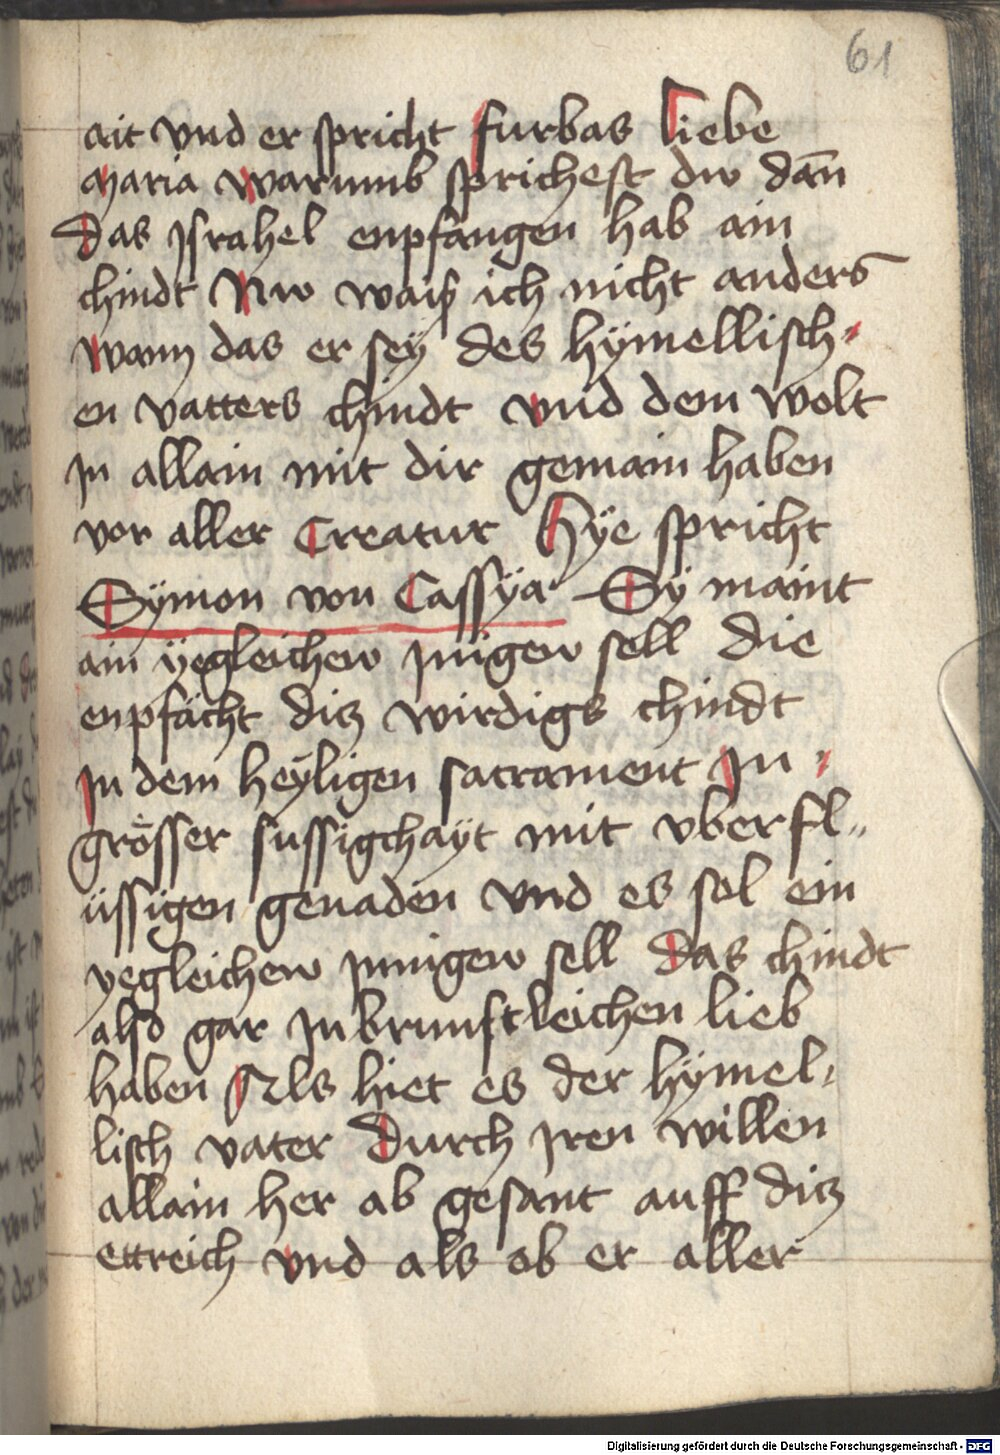 61
ait vnd er spricht furbas liebe
maria warumb sprichest dw dan̄
das jsrahel enpfangen hab ain
chindt Nw waiß ich nicht anders
wann das er sey des hÿmellisch-
en vatters chindt vnd dem wolt
jn allain mit dir gemain haben
vor aller Creatur Hÿe spricht
Sÿmon von Cassÿa Sy maint
ain ÿegleichew jnigew sell die
enpfächt dicz wirdigs chindt
jn dem heÿligen sacrament Jn
grösser sussigchaÿt mit vberfl„
üssigen genaden vnd es sol ein
yegleichew jnnigew sell das chindt
also gar jnbrunstleichen lieb
haben Als hiet es der hÿmel-
lisch vater durch jren willen
allain her ab gesant auff dicz
ettreich vnd als ob er aller
Digitalisierung gefördert durch die Deutsche Forschungsgemeinschaft - DFG